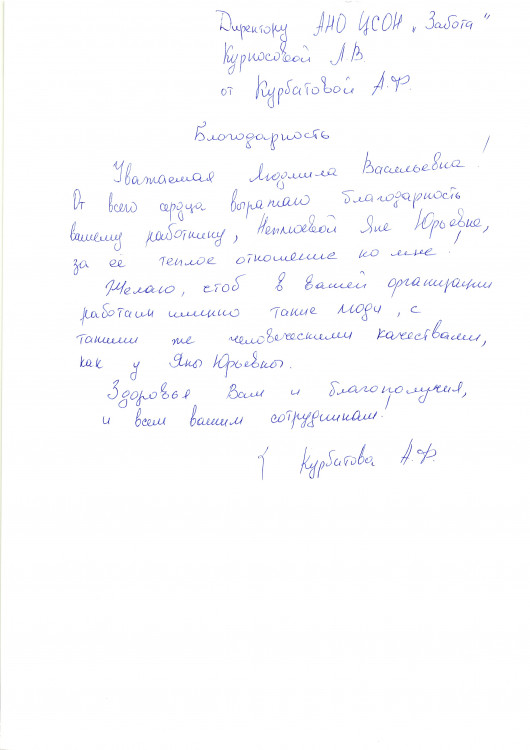 Директору АНО ЦСОН „Забота"
Курносовой Л.В.
от Курбатовой А.Ф.
Благодарность
Уважаемая Людмила Васильевна!
От всего сердца выражаю благодарность
вашему работнику, Неплюевой Яне Юрьевне,
за ее теплое отношение ко мне!
Желаю, чтоб в вашей организации
работали именно такие люди, с
такими же человеческими качествами,
как у Яны Юрьевны.
Здоровья Вам и благополучия,
и всем вашим сотрудникам!
Курбатова А.Ф.